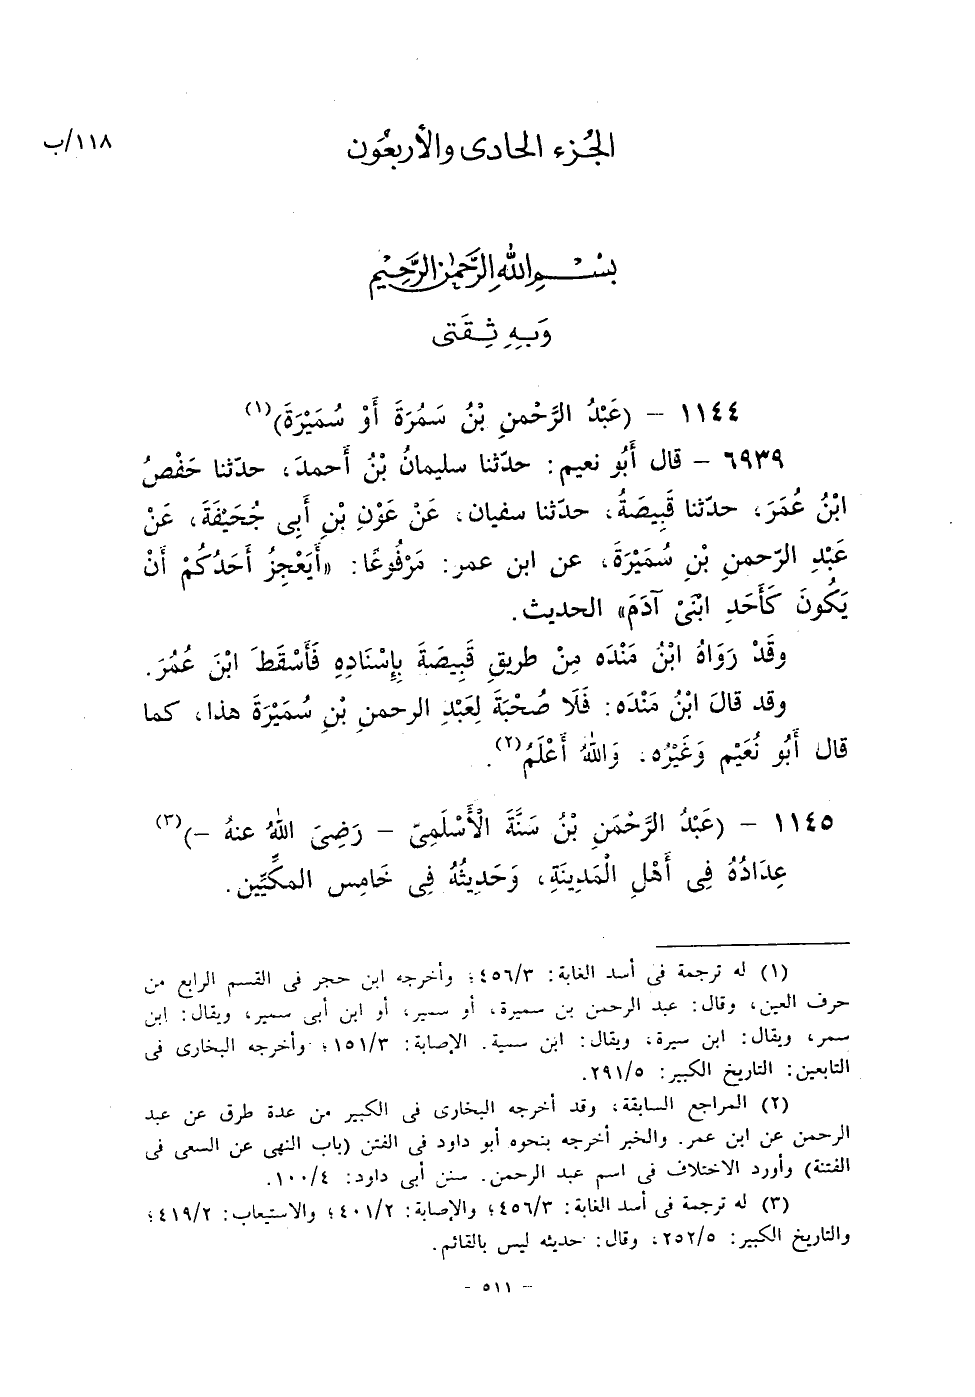 ١١٨/ب
الجُزء الحادى والأربعُون
بسم الله الرَّحمٰن الرَّحيم
وَبِهِ ثِقَتى
١١٤٤ – (عَبْدُ الرَّحْمنِ بْنُ سَمُرَةَ أَوْ سُمَيْرَةَ)(١)
٦٩٣٩ – قال أَبُو نعيم: حدّثنا سليمانُ بْنُ أَحمدَ، حدّثنا حَفْصُ
ابْنُ عُمَرَ، حدّثنا قَبِيصَةُ، حدّثنا سفيان، عَنْ عَوْنِ بْنِ أَبِى جُحَيْفَةَ، عَنْ
عَبْدِ الرّحمنِ بْنِ سُمَيْرَةَ، عن ابن عمر: مَرْفُوعًا: «أَيَعْجِزُ أَحَدُكُمْ أَنْ
يَكُونَ كَأَحَدِ ابْنَىْ آدَمَ» الحديث.
وقَدْ رَوَاهُ ابْنُ مَنْدَه مِنْ طريقِ قَبِيصَةَ بِإِسْنَادِهِ فَأَسْقَطَ ابْنَ عُمَرَ.
وقد قالَ ابْنُ مَنْدَه: فَلَا صُحْبَةَ لِعَبْدِ الرحمنِ بْنِ سُمَيْرَةَ هذا، كما
قال أَبُو نُعَيْم وَغَيْرُه. وَاللهُ أَعْلَمُ(٢).
١١٤٥ – (عَبْدُ الرَّحْمَنِ بْنُ سَنَّةَ الْأَسْلَمِىّ – رَضِىَ اللهُ عنهُ –)(٣)
عِدَادُهُ فِى أَهْلِ الْمَدِينَةِ، وَحَدِيثُهُ فِى خَامِس المكِّيِّين.
(١) له ترجمة فى أسد الغابة: ٤٥٦/٣؛ وأخرجه ابن حجر فى القسم الرابع من
حرف العين، وقال: عبد الرحمن بن سميرة، أو سمير، أو ابن أبى سمير، ويقال: ابن
سمر، ويقال: ابن سبرة، ويقال: ابن سمية. الإصابة: ١٥١/٣؛ وأخرجه البخارى فى
التابعين: التاريخ الكبير: ٢٩١/٥.
(٢) المراجع السابقة، وقد أخرجه البخارى فى الكبير من عدة طرق عن عبد
الرحمن عن ابن عمر. والخبر أخرجه بنحوه أبو داود فى الفتن (باب النهى عن السعى فى
الفتنة) وأورد الاختلاف فى اسم عبد الرحمن. سنن أبى داود: ١٠٠/٤.
(٣) له ترجمة فى أسد الغابة: ٤٥٦/٣؛ والإصابة: ٤٠١/٢؛ والاستيعاب: ٤١٩/٢؛
والتاريخ الكبير: ٢٥٢/٥، وقال: حديثه ليس بالقائم.
- ٥١١ -